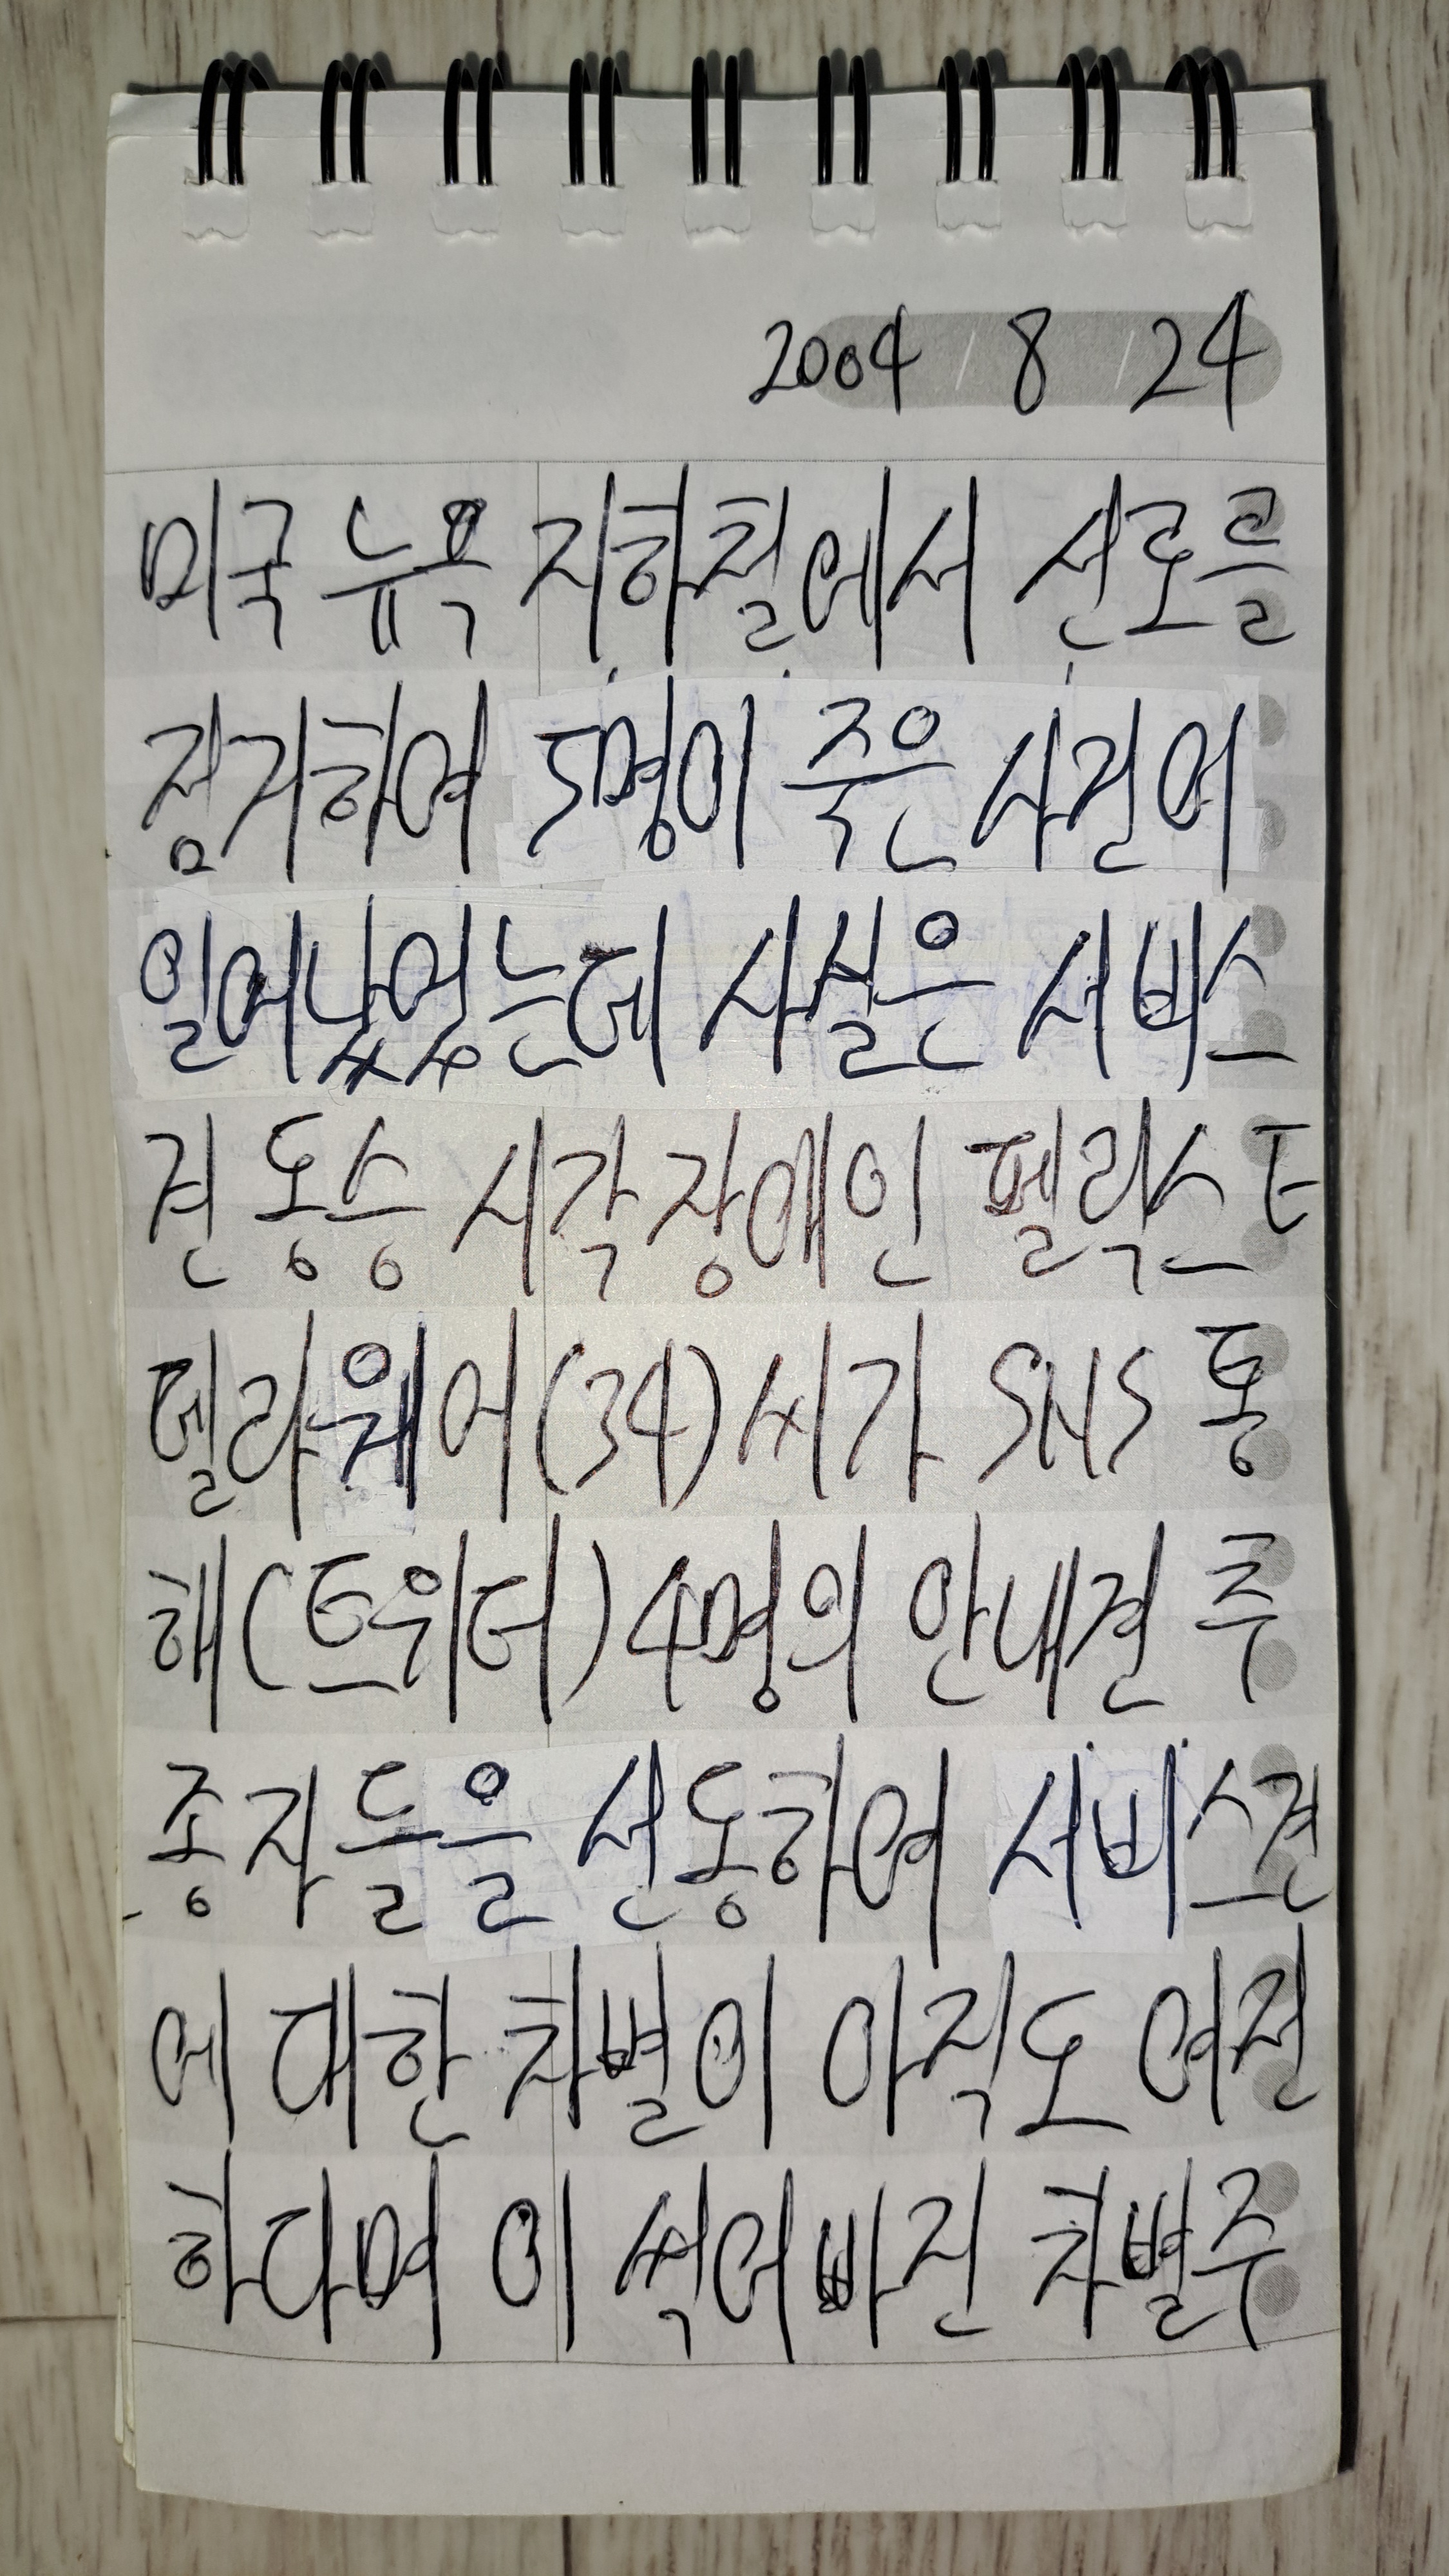 2004 / 8 / 24
미국 뉴욕 지하철에서 선로를
점거하여 5명이 죽은 사건이
일어났었는데 사실은 서비스
견 동승 시각장애인 펠릭스 E
델라웨어(34)씨가 SNS 통
해(트위터) 4명의 안내견 추
종자들을 선동하여 서비스견
에 대한 차별이 아직도 여전
하다며 이 썩어빠진 차별주